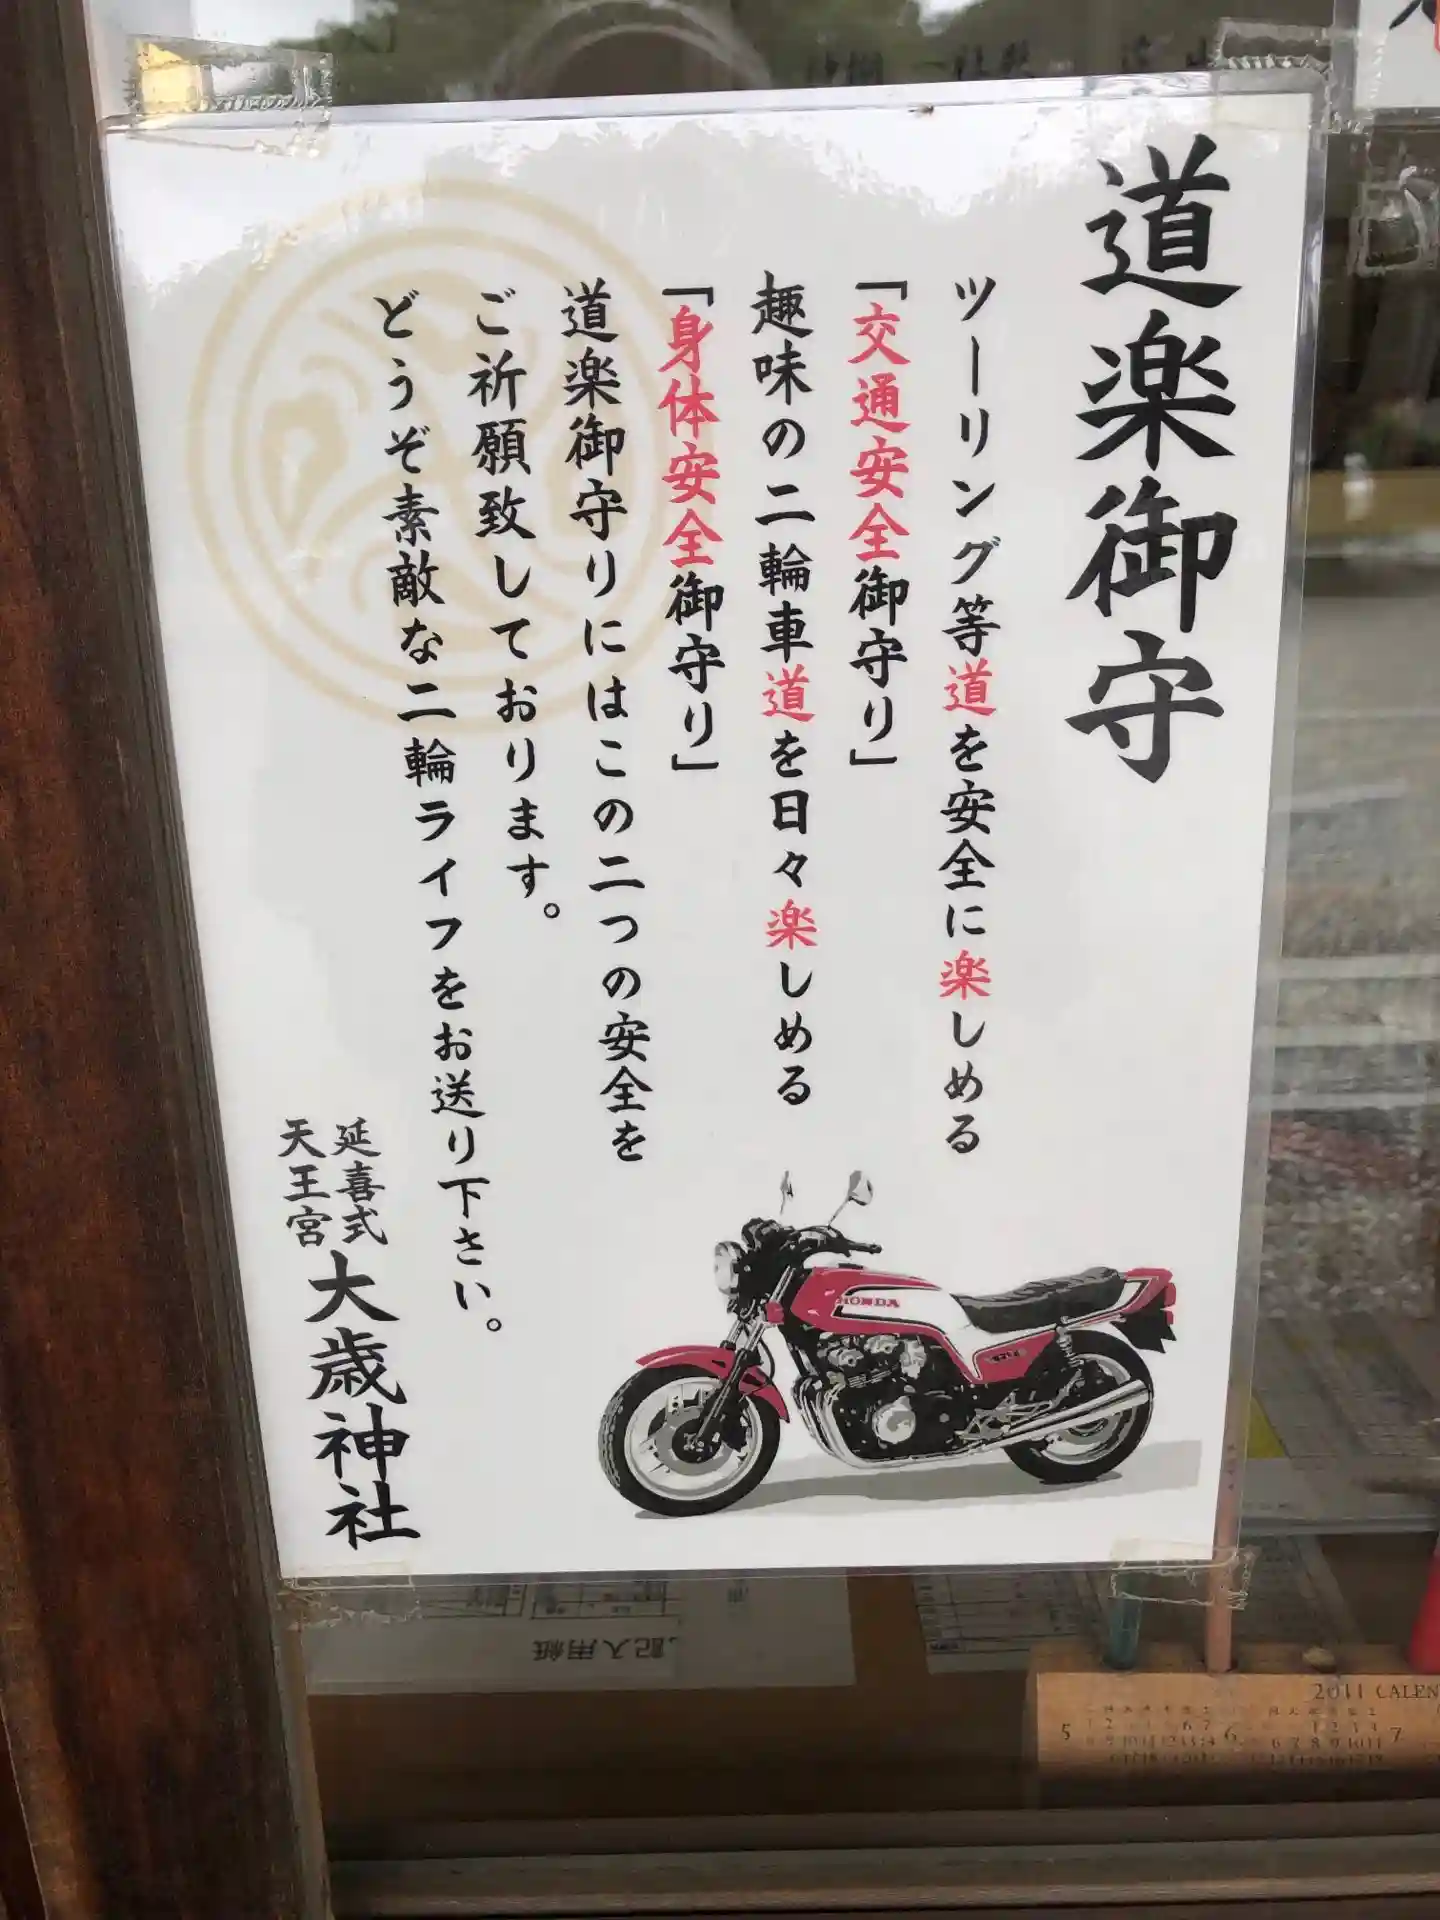 道楽御守
ツーリング等道を安全に楽しめる
「交通安全御守り」
趣味の二輪車道を日々楽しめる
「身体安全御守り」
道楽御守りにはこの二つの安全を
ご祈願致しております。
どうぞ素敵な二輪ライフをお送り下さい。
延喜式
天王宮
大歳神社
HONDA
記入用紙
2011 CALEN
5
6
7